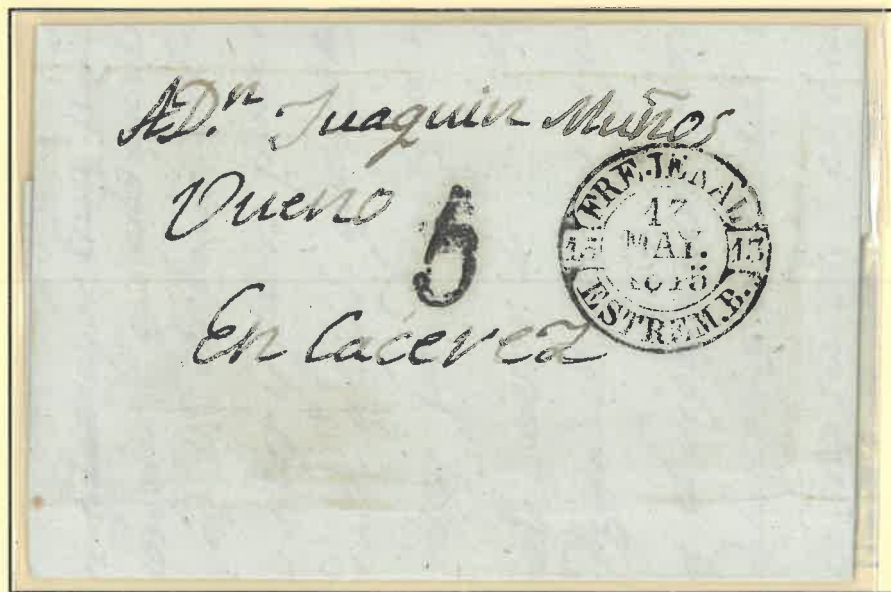 A D.ⁿ Juaquin Muños
Vueno
5
En Caceres
FREJENAL
17
MAY.
13 13
ESTREM.B.